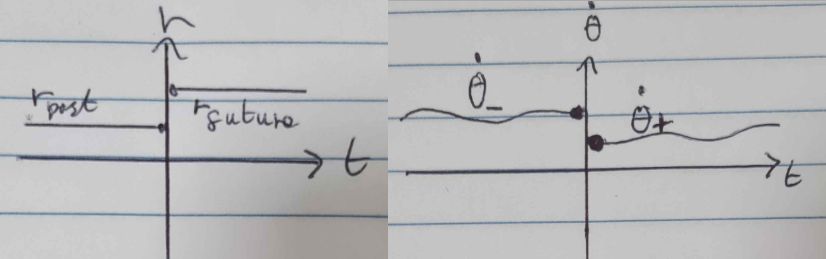 r
r_past
r_future
t
θ̇
θ̇_-
θ̇_+
t